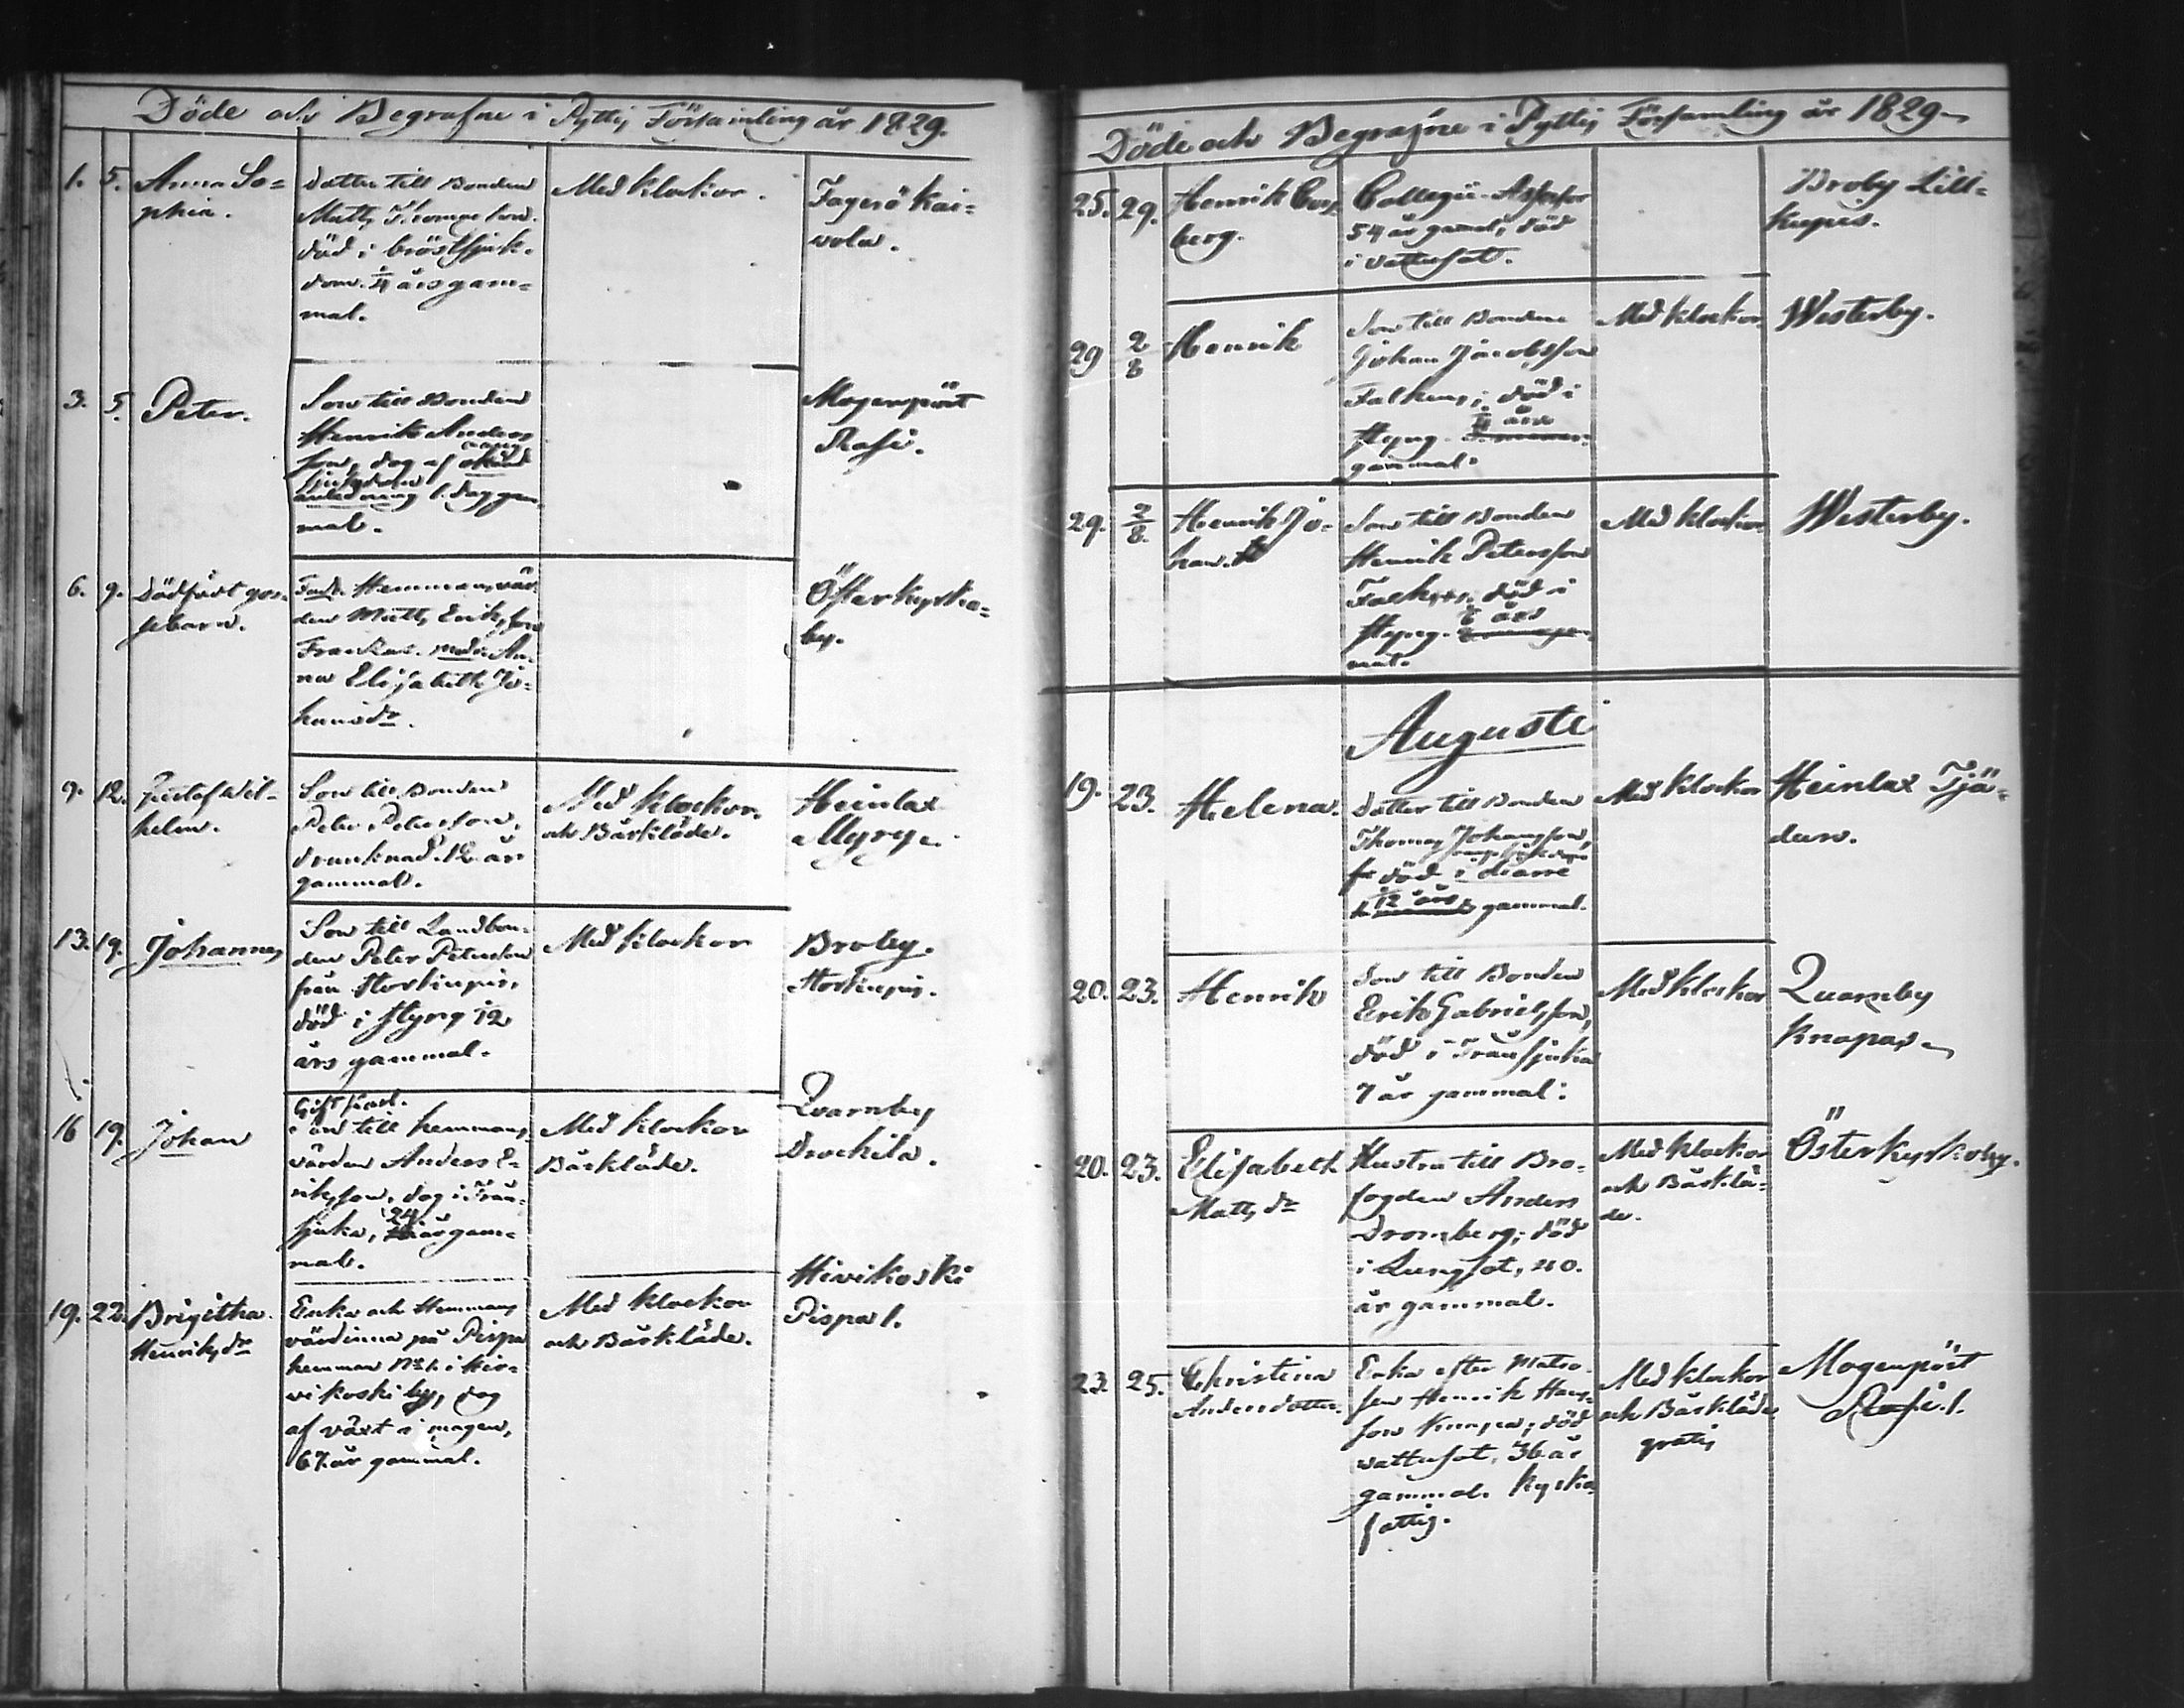 Döde och Begrafne i Pyttis Församling år 1829.
1. 5. Anna So=
phia.
Dotter till Bonden
Matts Thomasson.
död i bröstsjuk-
dom. 1/4 års gam=
mal.
Med klockor.
Fagerö Kai=
vola.
3. 5. Peter.
Son till Bonden
Henrik Anders
son, dog af okänd
sjukdom
anledning 1. dag gam
mal.
Mogenpört
Rasi.
6. 9. Dödfödt gos-
sebarn.
Fadr. Hemmansvär
den Matts Eriksson
modr. An-
na Elisabeth Jo-
hansdr.
Österkyrko=
by.
9. 12. Gustaf Wil-
helm.
Son till Bonden
Peter Petersson,
drunknad. 12 år
gammal.
Med Klockor
och Bårkläde.
Heinlax
Myry.
13. 19. Johannes
Son till Landbon-
den Peter Petersson
från Storkupis,
död i styng 12
års gammal.
Med klockor
Broby.
Storkupis.
16 19. Johan
Gift karl.
son till hemmans-
värden Anders E-
riksson, dog i Trån-
sjuka, 24 år gam-
mal.
Med klockor
Bårkläde.
Qvarnby
Drockila.
19. 22. Brigitha
Henriksdr
Enka och Hemmans
värdinna på Pispa
hemman No 1. i Hir-
vikoski by, dog
af växt i magen,
67. år gammal.
Med klockor
och Bårkläde.
Hirvikoski
Pispa 1.
Döde och Begrafne i Pyttis Församling år 1829
25. 29. Henrik
berg.
Collegii-Assessor
54 år gamal, död
i vattusot.
Broby Lill-
kupis.
29 2/8 Henrik
Son till Bonden
Johan Jacobsson
Falkens; död i
styng. 1/4 års
gammal.
Med klockor.
Westerby.
29. 2/8. Henrik Jo-
han.
Son till Bonden
Henrik Petersson
död i
styng. års
mal.
Med klockor
Westerby.
Augusti
19. 23. Helena.
Dotter till Bonden
Thomas Johansson,
död i diarré
1/12 års gammal.
Med klockor
Heinlax Tjä-
der.
20. 23. Henrik
Son till Bonden
Erik Gabrielsson,
död i Trånsjuka
7 år gammal.
Med klockor
Quarnby
Knapas
20. 23. Elisabeth
Mattsdr
Hustru till Bro-
fogden Anders
Dromberg; död
i Lungsot, 40.
år gammal.
Med klockor
och Bårklä-
de.
Österkyrkoby.
23. 25. Christina
Andersdotter.
Enka efter Matro-
sen Henrik Hans-
son; död
vattusot, 36 år
gammal. Kyrko
fattig.
Med klockor
och Bårkläde
gratis
Mogenpört
Rasi. 1.